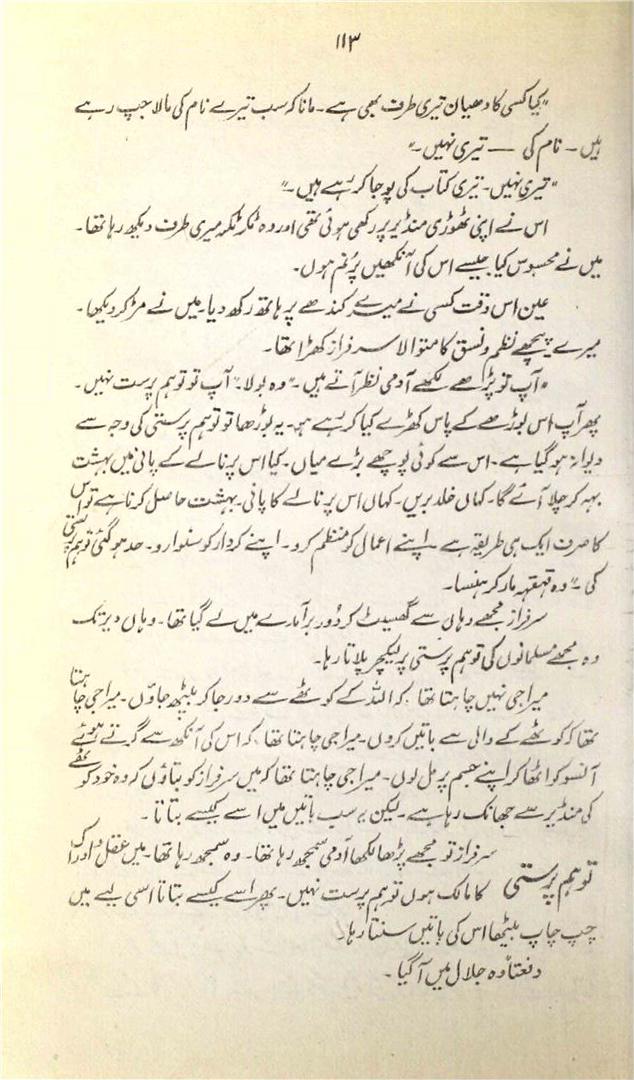 ۱۱۳
"کیا کسی کا دھیان تیری طرف بھی ہے۔ مانا کہ سب تیرے نام کی مالا جپ رہے
ہیں۔ نام کی — تیری نہیں۔"
"تیری نہیں۔ تیری کتاب کی پوجا کر رہے ہیں۔"
اس نے اپنی ٹھوڑی منڈیر پر رکھی ہوئی تھی اور وہ ٹکر ٹکر میری طرف دیکھ رہا تھا۔
میں نے محسوس کیا جیسے اس کی آنکھیں پُرنم ہوں۔
عین اس وقت کسی نے میرے کندھے پر ہاتھ رکھ دیا۔ میں نے مڑ کر دیکھا۔
میرے پیچھے نظم و نسق کا متوالا سرفراز کھڑا تھا۔
"آپ تو پڑھے لکھے آدمی نظر آتے ہیں۔" وہ بولا۔ "آپ تو توہم پرست نہیں۔
پھر آپ اس بوڑھے کے پاس کھڑے کیا کر رہے ہو۔ یہ بوڑھا تو توہم پرستی کی وجہ سے
دیوانہ ہو گیا ہے۔ اس سے کوئی پوچھے بڑے میاں۔ کیا اس پرنالے کے پانی میں بہشت
بہہ کر چلا آئے گا۔ کہاں خلد بریں۔ کہاں اس پرنالے کا پانی۔ بہشت حاصل کرنا ہے تو اس
کا صرف ایک ہی طریقہ ہے۔ اپنے اعمال کو منظم کرو۔ اپنے کردار کو سنوارو۔ حد ہو گئی توہم پرستی
کی۔" وہ قہقہہ مار کر ہنسا۔
سرفراز مجھے وہاں سے گھسیٹ کر دُور برآمدے میں لے گیا تھا۔ وہاں دیر تک
وہ مجھے مسلمانوں کی توہم پرستی پر لیکچر پلاتا رہا۔
میرا جی نہیں چاہتا تھا کہ اللہ کے کوٹھے سے دور جا کر بیٹھ جاؤں۔ میرا جی چاہتا
تھا کہ کوٹھے کے والی سے باتیں کروں۔ میرا جی چاہتا تھا کہ اس کی آنکھ سے گرتے ہوئے
آنسو کو اٹھا کر اپنے جسم پر مل لوں۔ میرا جی چاہتا تھا کہ میں سرفراز کو بتاؤں کہ وہ خود کوٹھے
کی منڈیر سے جھانک رہا ہے۔ لیکن یہ سب باتیں میں اسے کیسے بتاتا۔
سرفراز تو مجھے پڑھا لکھا آدمی سمجھ رہا تھا۔ وہ سمجھ رہا تھا۔ میں عقل و ادراک
توہم پرستی کا مالک ہوں توہم پرست نہیں۔ پھر اسے کیسے بتاتا اسی لیے میں
چپ چاپ بیٹھا اس کی باتیں سنتا رہا۔
دفعتاً وہ جلال میں آ گیا۔